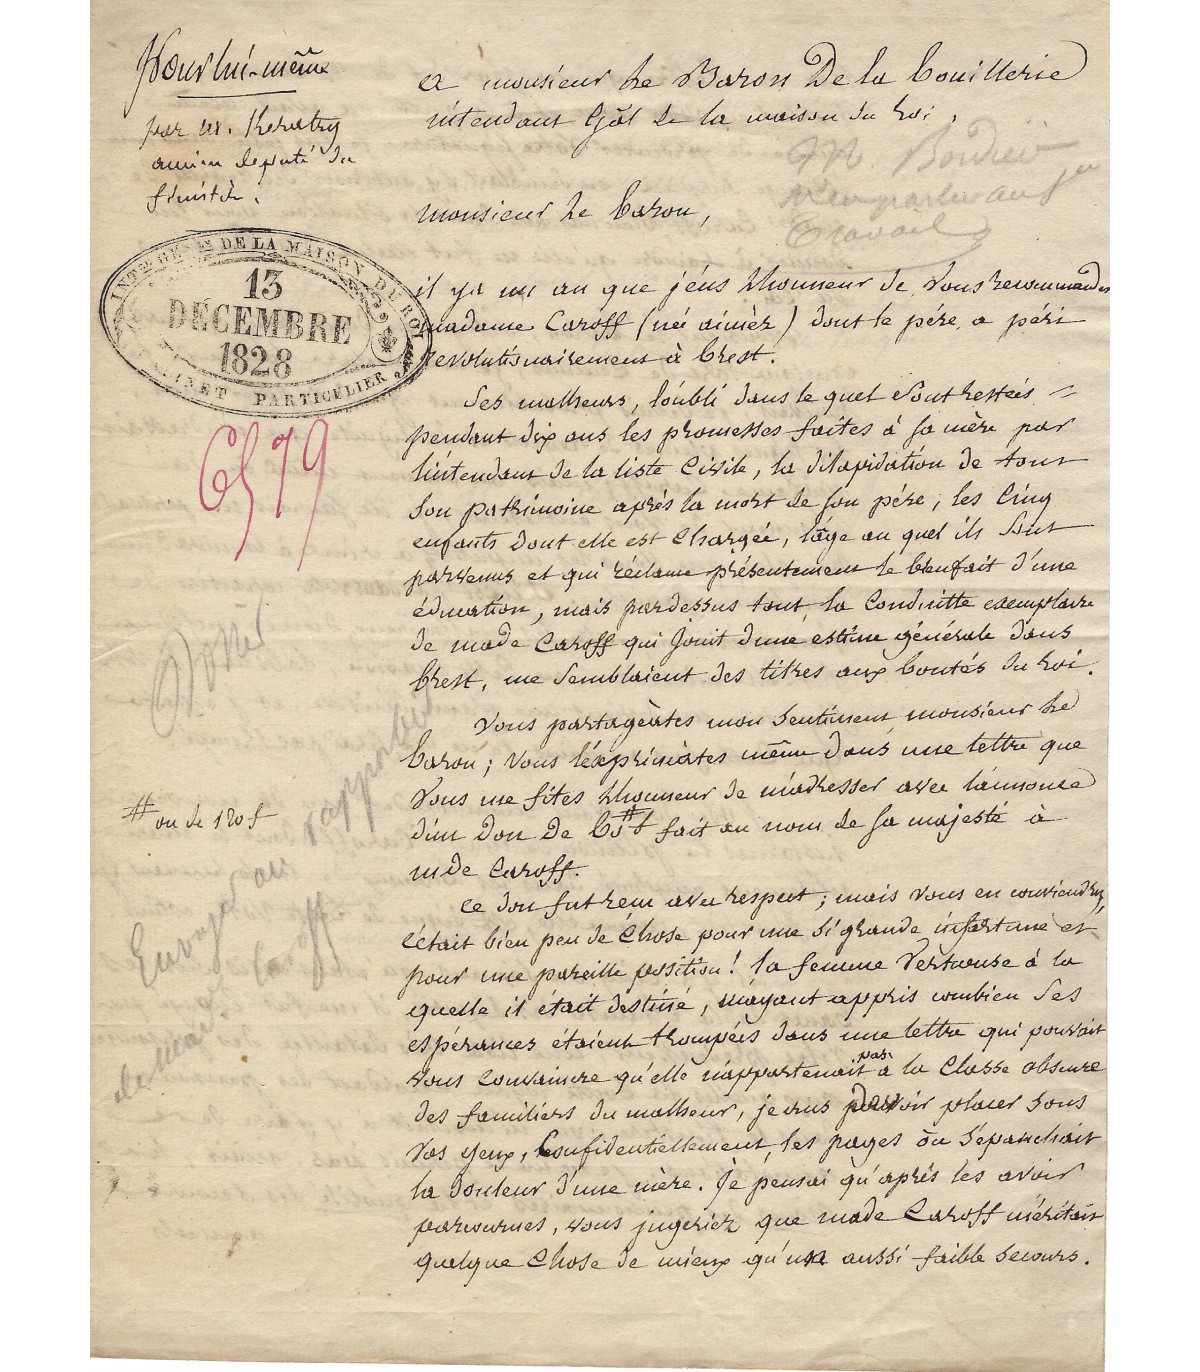 Pour lui-même
par m. Keratry
ancien deputé du
finistère.
a monsieur le Baron De la bouillerie
intendant Gāl de la maison du roi,
M. Bordier
m'en parler au 1er
Travail
monsieur le baron,
INTce GENle DE LA MAISON DU ROI
13
DÉCEMBRE
1828
CABINET PARTICULIER
6579
il y a un an que j'eus l'honneur de vous recommander
madame Caroff (née aimèz) dont le pére a péri
revolutionairement à brest.
Ses malheurs, l'oubli dans le quel sont restées
pendant dix ans les promesses faites à sa mère par
l'intendant de la liste Civile, la dilapidation de tout
son patrimoine après la mort de son pére, les Cinq
enfants dont elle est Chargée, l'âge au quel ils sont
parvenus et qui réclame présentement le bienfait d'une
éducation, mais pardessus tout la Conduitte exemplaire
de made Caroff qui jouit d'une estime générale dans
brest, me semblaient des titres aux bontés du roi.
Vous partageâtes mon sentiment monsieur le
baron; vous l'exprimâtes même dans une lettre que
vous me fites l'honneur de m'adresser avec l'annonce
d'un Don De 60# f fait au nom de sa majesté à
mde Caroff.
# ou de 120 f
Noter
Envoyer au rapport
de Mad. Caroff
ce don fut reçu avec respect; mais vous en conviendrez,
c'était bien peu de Chose pour une si grande infortune et
pour une pareille position! la femme vertueuse à la
quelle il était destiné, m'ayant appris combien ses
espérances étaient trompées dans une lettre qui pouvait
vous convaincre qu'elle n'appartenait pas à la Classe obscure
des familiers du malheur, je crus pouvoir placer sous
vos yeux, Confidentiellement, les pages où s'épanchait
la douleur d'une mère. Je pensai qu'après les avoir
parcourues, vous jugeriez que made Caroff méritait
quelque Chose de mieux qu'un aussi faible secours.